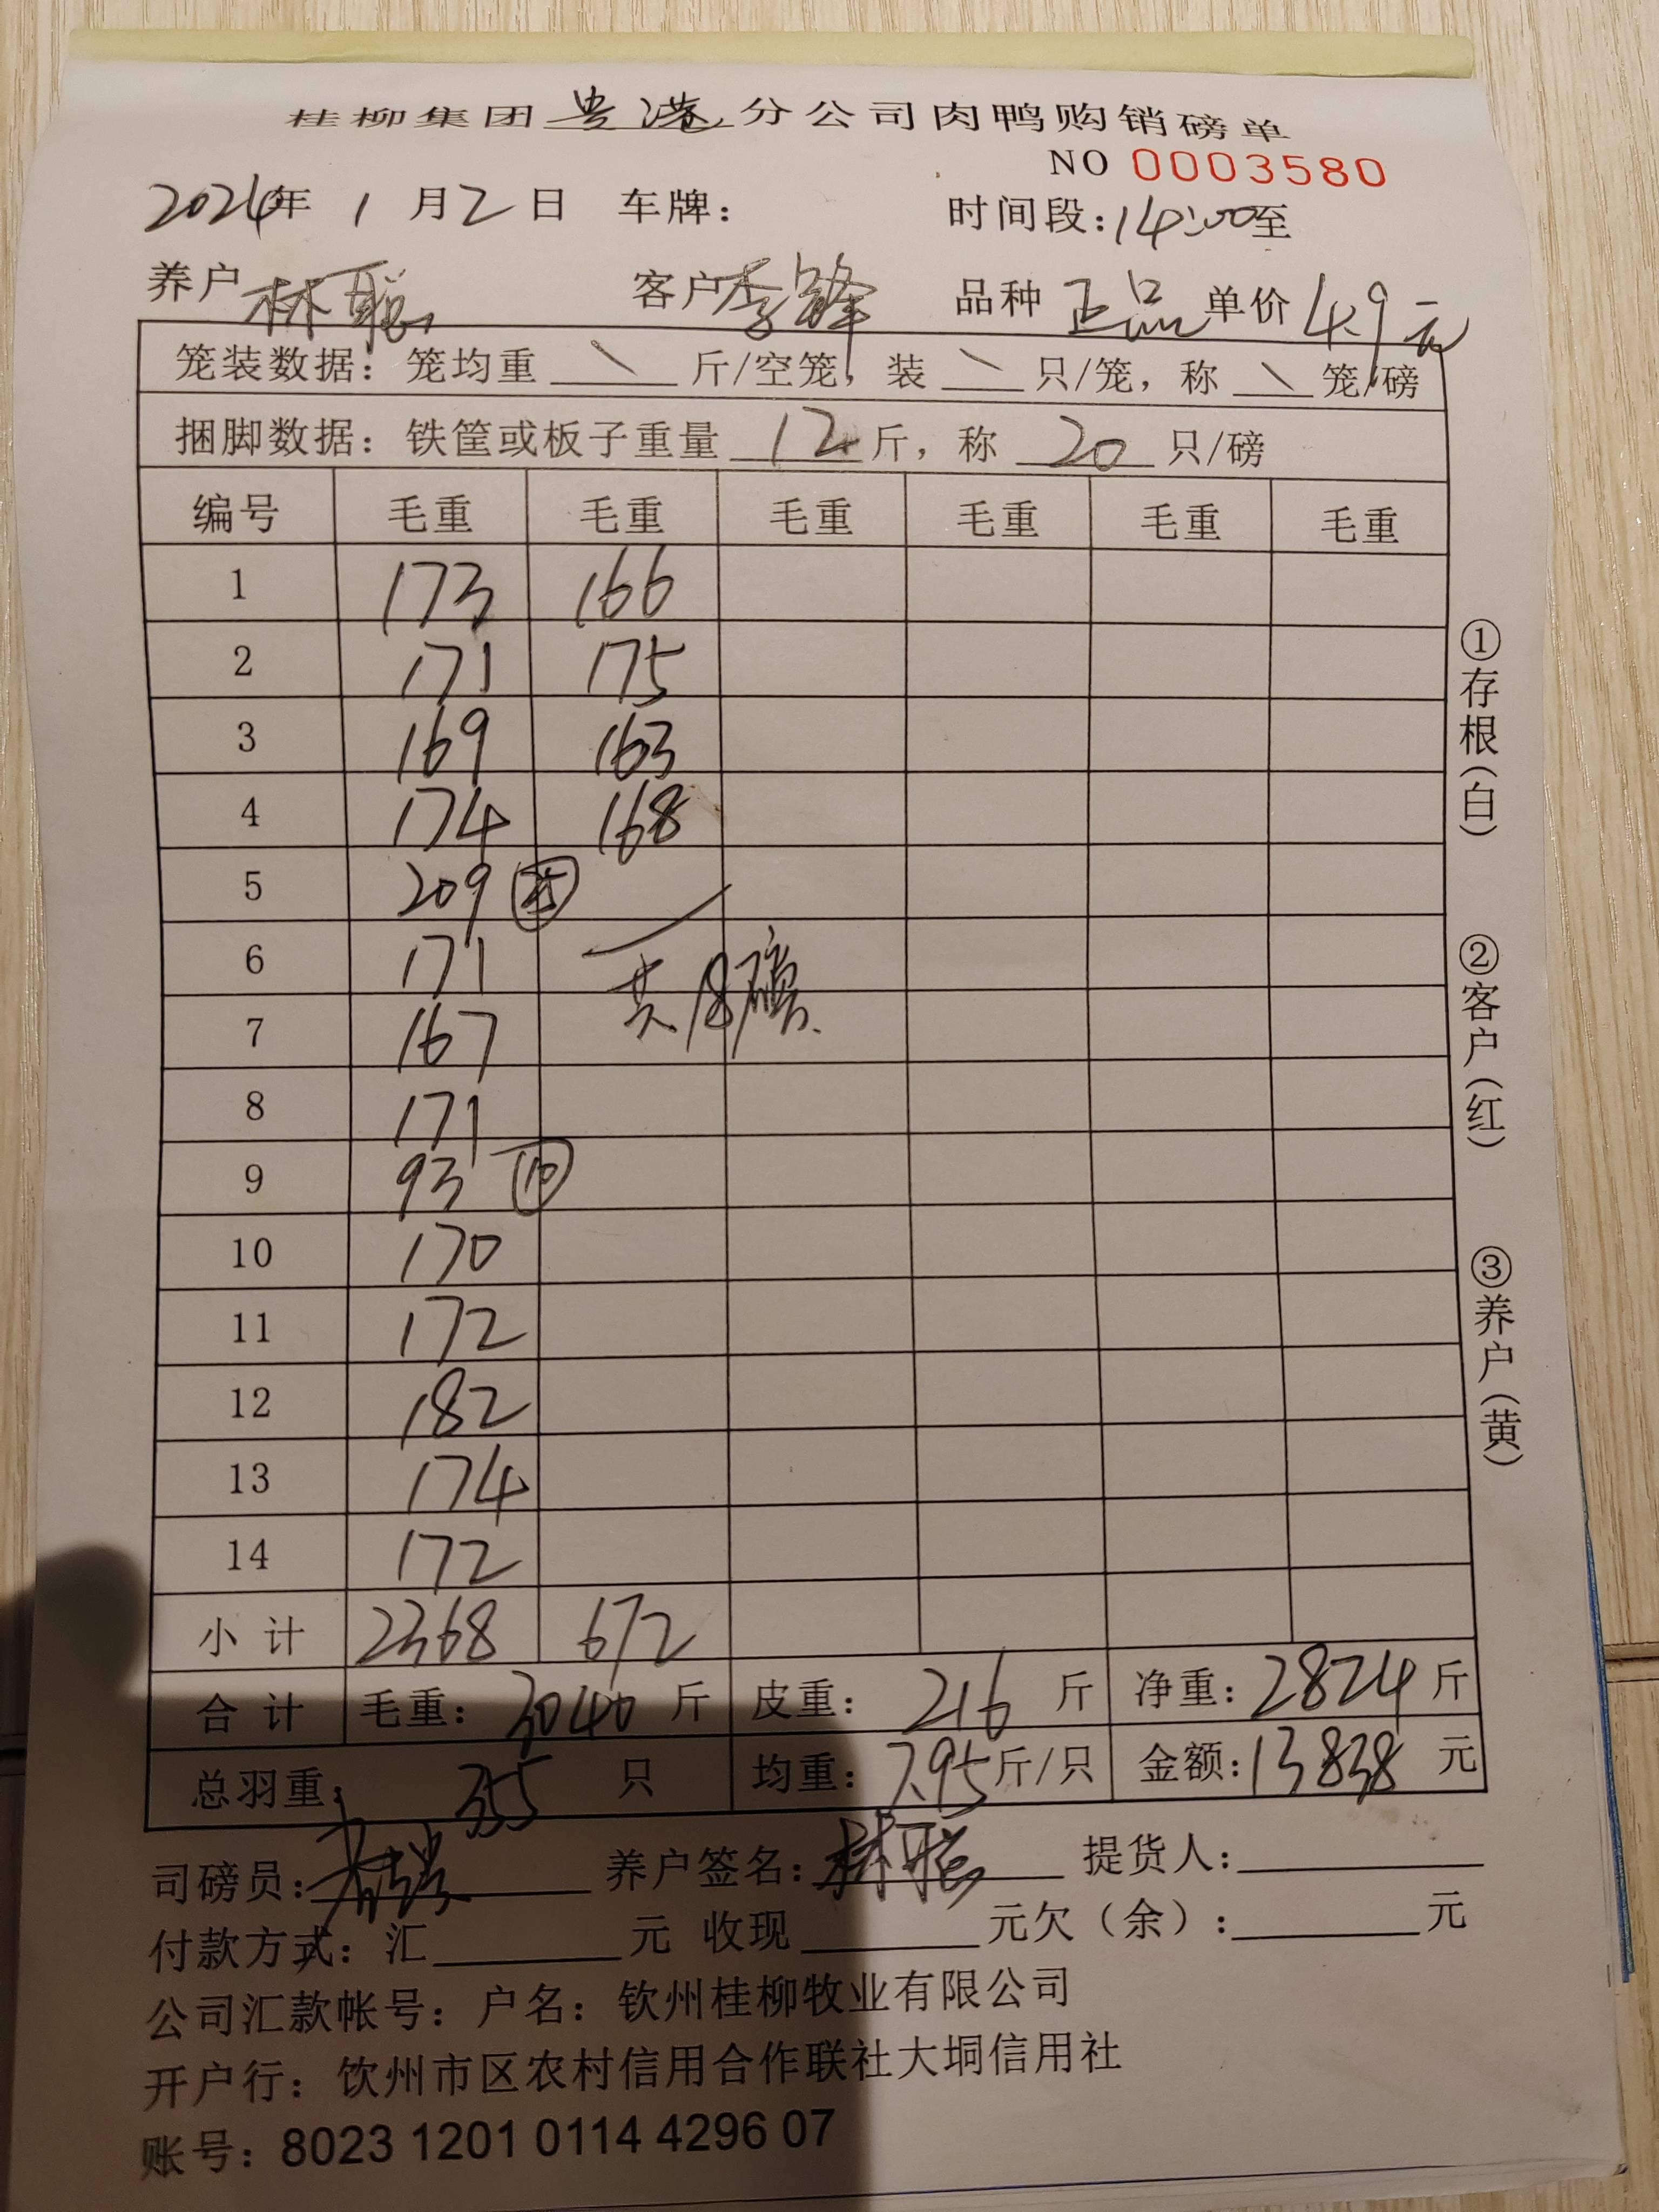 桂柳集团贵港分公司肉鸭购销磅单
NO 0003580
2024年 1 月 2 日 车牌: 时间段:14:00至
养户 林聪 客户 李锋 品种 正品 单价 4.9元
笼装数据: 笼均重 \ 斤/空笼, 装 \ 只/笼, 称 \ 笼/磅
捆脚数据: 铁筐或板子重量 12 斤, 称 20 只/磅
编号 毛重 毛重 毛重 毛重 毛重 毛重
1 173 166
2 171 175
3 169 163
4 174 168
5 209 ㉕
6 171
共18磅
7 167
8 171
9 93 ⑩
10 170
11 172
12 182
13 174
14 172
小计 2368 672
合计 毛重: 3040 斤 皮重: 216 斤 净重: 2824 斤
总羽重: 355 只 均重: 7.95 斤/只 金额: 13838 元
司磅员: 养户签名: 林聪 提货人:
付款方式: 汇 元 收现 元欠(余): 元
公司汇款帐号: 户名: 钦州桂柳牧业有限公司
开户行: 钦州市区农村信用合作联社大垌信用社
账号: 8023 1201 0114 4296 07
①存根(白)
②客户(红)
③养户(黄)